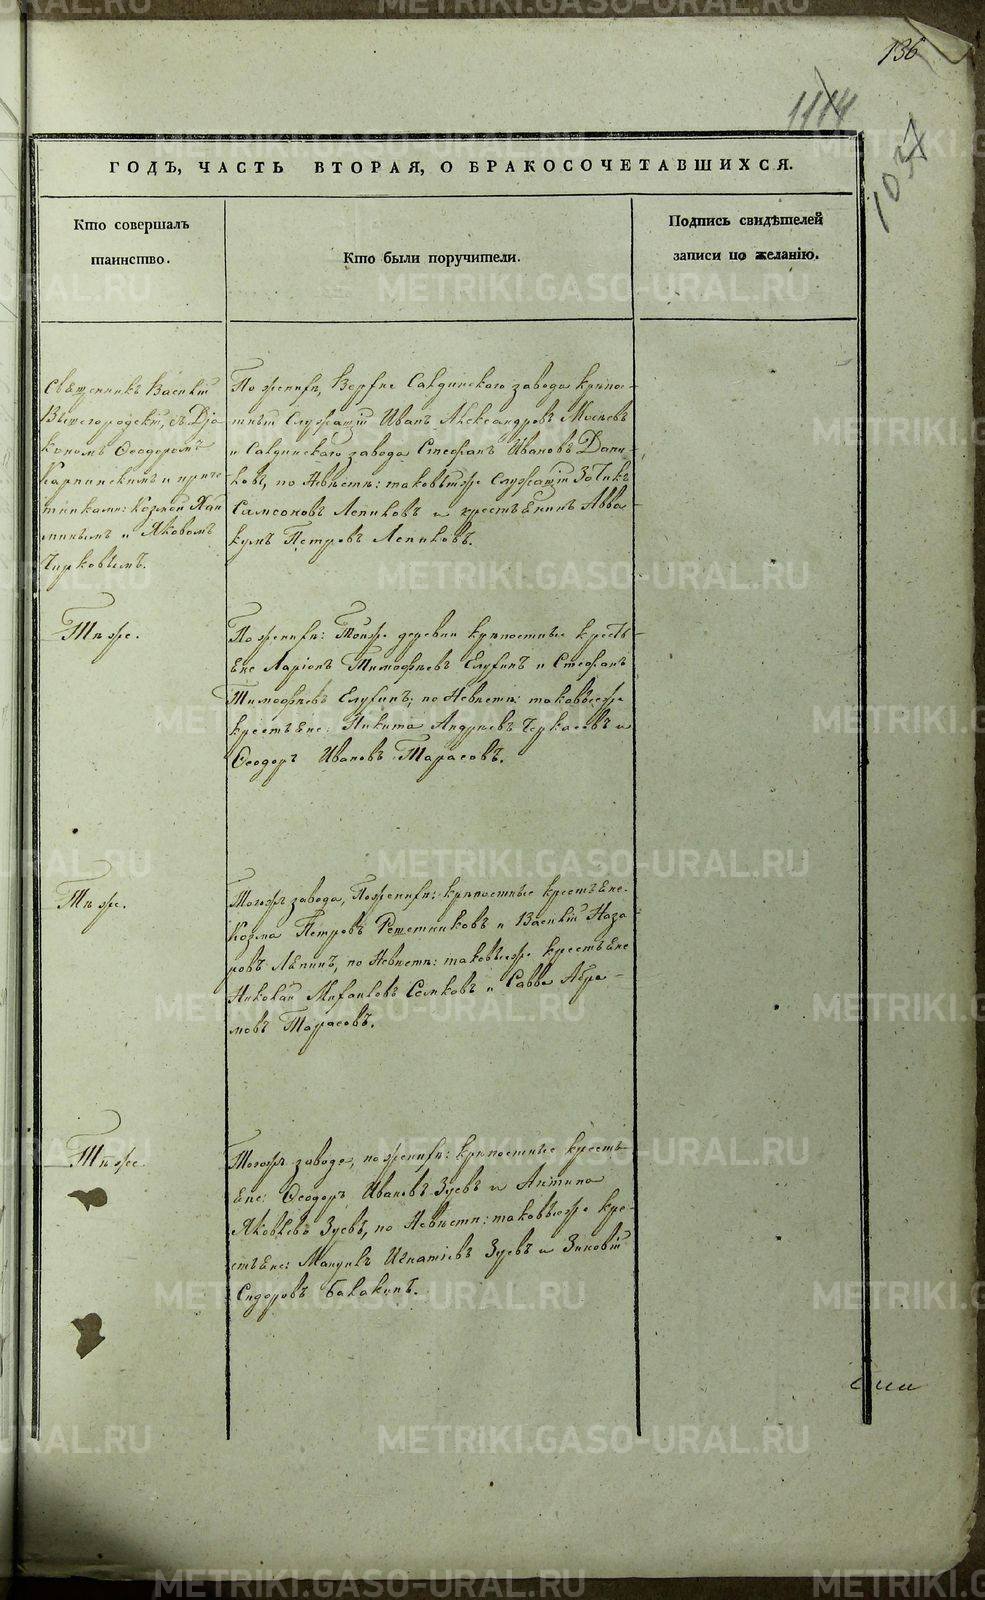 136
1114
1037
ГОДЪ, ЧАСТЬ ВТОРАЯ, О БРАКОСОЧЕТАВШИХСЯ.
Кто совершалъ
таинство.
Кто были поручители.
Подпись свидѣтелей
записи по желанію.
Священникъ Василій
Вышегородскій, съ Дja
кономъ Ѳеодоромъ
Карпинскимъ и приче
тниками: Козмой
и Яковомъ
Чирковымъ.
По женихѣ, Верхне Салдинскаго завода крѣпос-
тный Служащій Иванъ Александровъ Мосѣевъ
и Салдинскаго завода Стефанъ Ивановъ
по Невѣстѣ: таковыеже Служащій Зотикъ
Самсоновъ Лепиковъ и крестьянинъ Авва
кумъ Петровъ Лепиковъ.
Тѣже.
По женихѣ: Тойже деревни крѣпостные кресть-
яне Ларіонъ Тимофѣевъ Елухинъ и Стефанъ
Тимофѣевъ Елухинъ; по Невѣстѣ: таковыеже
крестьяне: Никита Андреевъ Черкасовъ и
Ѳеодоръ Ивановъ Тарасовъ.
Тѣже.
Тогоже завода, По женихѣ: крѣпостные крестьяне
Козма Петровъ Решетниковъ и Василій Наза
ровъ Ляпинъ, по Невѣстѣ: таковыеже крестьяне
Николай Михаиловъ и Савва Абра-
мовъ Тарасовъ.
Тѣже
Тогоже завода, по женихѣ: крѣпостные кресть-
яне: Ѳеодоръ Ивановъ Зуевъ и Антипа
Яковлевъ Зуевъ, по Невѣстѣ: таковыеже кре-
стьяне: Мануилъ Игнатіевъ Зуевъ и Зиновій
Сидоровъ Балакинъ.
METRIKI.GASO-URAL.RU